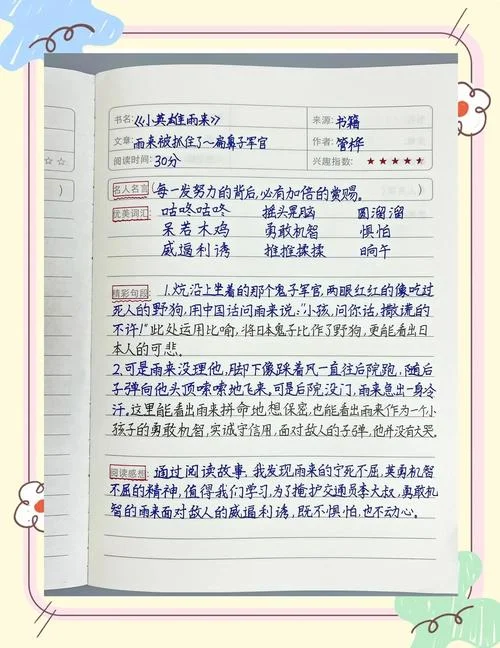 书名:《小英雄雨来》 来源: 书籍
文章: 雨来被抓住了~扁鼻子军官 作者: 管桦
阅读时间: 30分 兴趣指数: ★★★★★
名人名言: 每一发努力的背后,必有加倍的赏赐。
优美词汇: 咕咚咕咚 摇头晃脑 圆溜溜
呆若木鸡 勇敢机智 惧怕
威逼利诱 推推揉揉 晌午
精彩句段: 1.炕沿上坐着的那个鬼子军官,两眼红红的像吃过
死人的野狗,用中国话问雨来说:“小孩,问你话,撒谎的
不许!”此处运用比喻,将日本鬼子比作了野狗,更能看出日
本人的可悲。
2.可是雨来没理他,脚下像踩着风一直往后院跑,随后
子弹向他头顶嗦嗦地飞来。可是后院没门,雨来急出一身冷
汗。这里能看出雨来拼命地想保密,也能看出雨来作为一个小
孩子的勇敢机智,实诚守信用,面对敌人的子弹,他并没有大哭。
阅读感想: 通过阅读故事,我发现雨来的宁死不屈,英勇机智
不屈的精神,值得我们学习,为了掩护交通员李大叔,勇敢机
智的雨来面对敌人的威逼利诱,既不惧怕,也不动心。